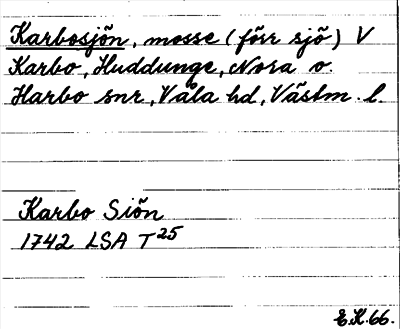 Karbosjön, mosse (förr sjö) V
Karbo, Huddunge, Nora o.
Harbo snr, Våla hd, Västm. l.
Karbo Siön
1742 LSA T25
E.K.66.